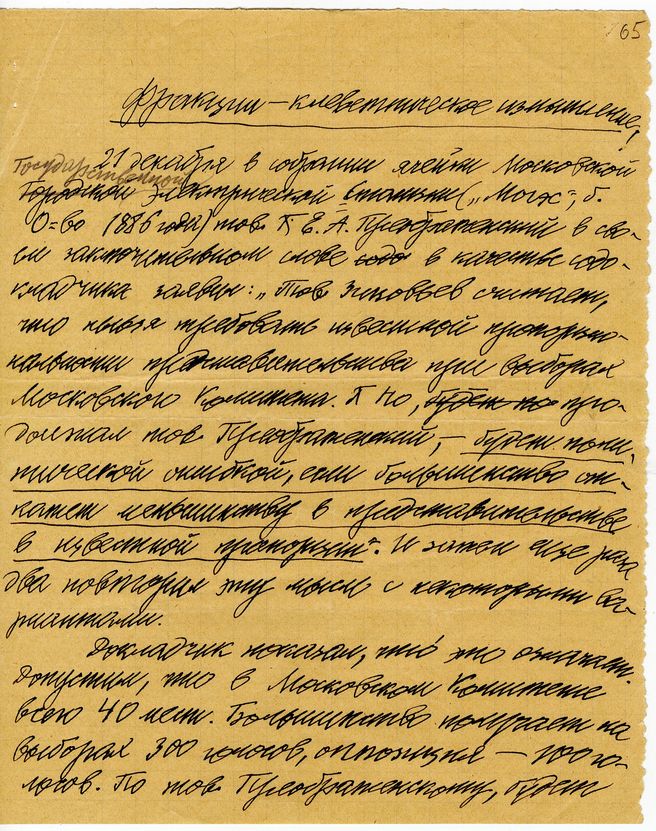 65
Фракции — клеветническое измышление!
21 декабря в собрании ячейки Московской
Государственной
Городской Электрической Станции („Могэс“, б.
О-во 1886 года) тов. Е. А. Преображенский в сво-
ем заключительном слове в качестве содо-
кладчика заявил: „Тов. Зиновьев считает,
что нельзя требовать известной пропорцио-
нальности представительства при выборах
Московского Комитета. Но, про-
должал тов. Преображенский, — будет поли-
тической ошибкой, если большинство от-
кажет меньшинству в представительстве
в известной пропорции“. И затем еще раза
два повторил эту мысль с некоторыми ва-
риантами.
Докладчик показал, что это означает.
Допустим, что в Московском Комитете
всего 40 мест. Большинство получает на
выборах 300 голосов, оппозиция — 100 го-
лосов. По тов. Преображенскому, будет